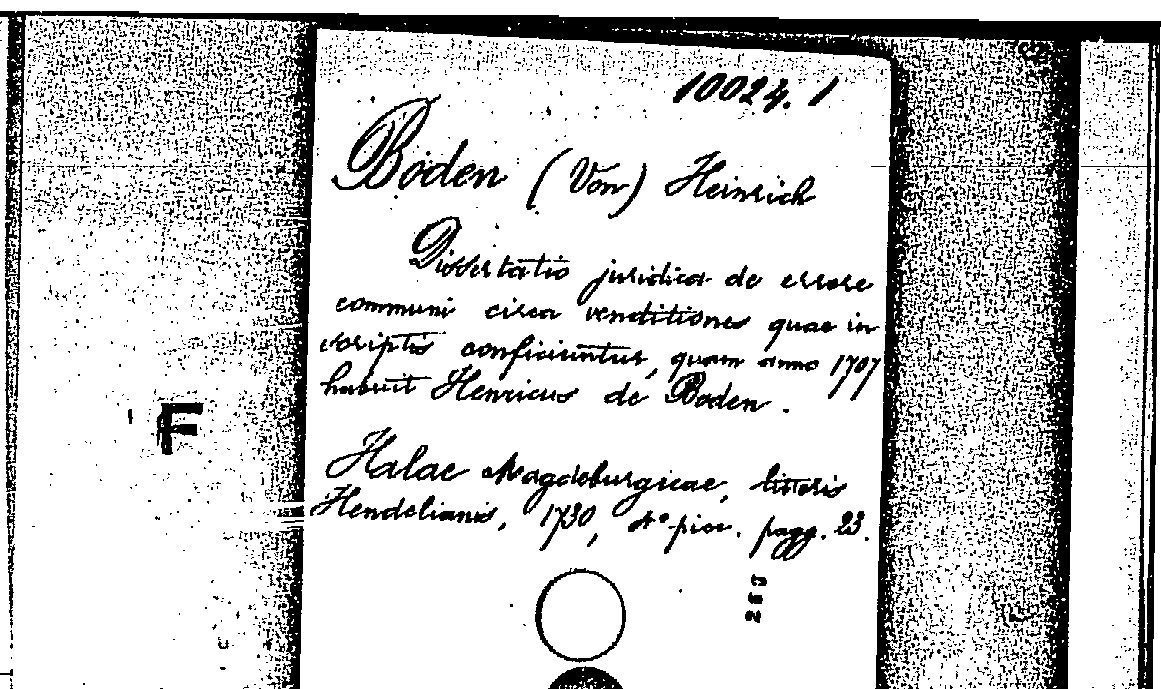 10024.1
Boden (Von) Heinrich
Dissertatio juridica de errore
communi circa venditiones quae in
scriptis conficiuntur, quam anno 1707
habuit Henricus de Boden.
Halae Magdeburgicae, litteris
Hendelianis, 1730, 4° picc. pagg. 23.
F